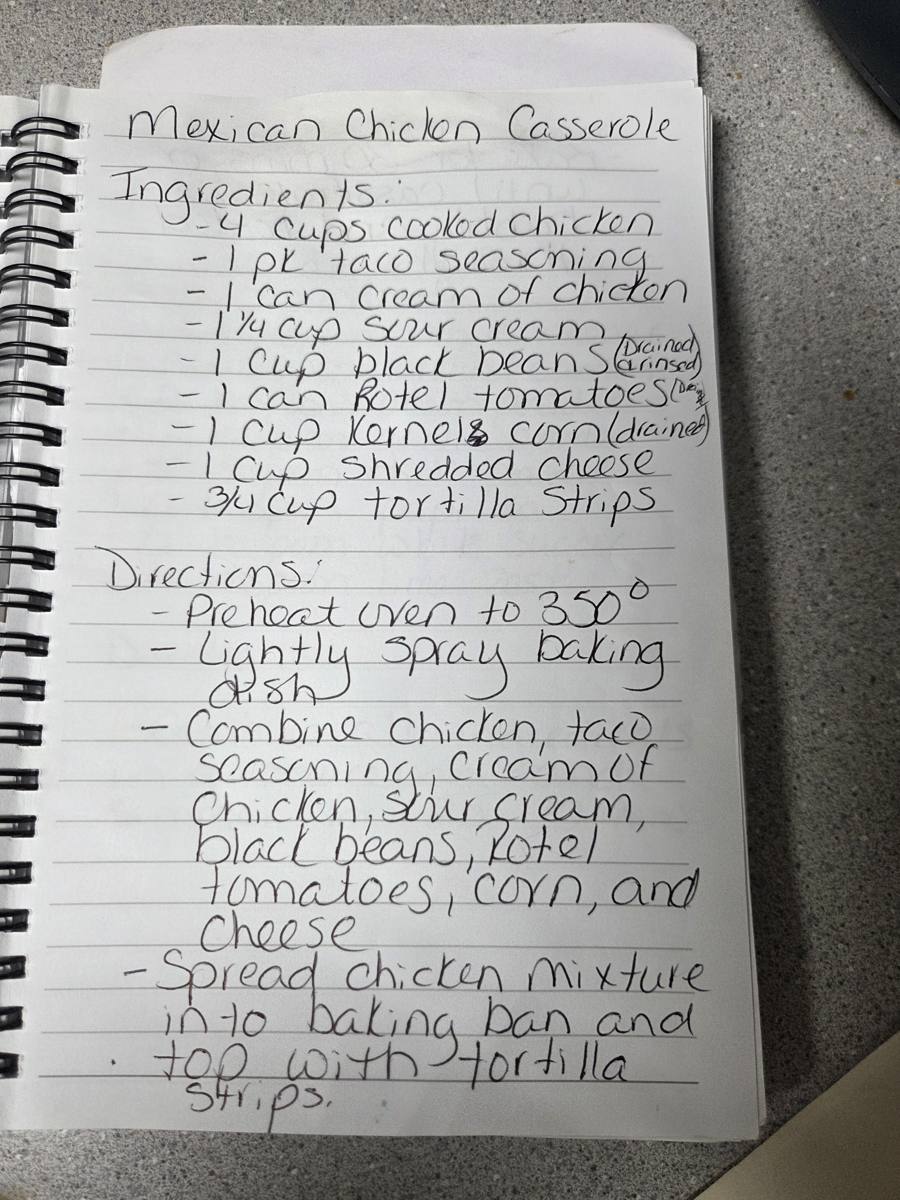 Mexican Chicken Casserole
Ingredients:
- 4 cups cooked chicken
- 1 pk taco seasoning
- 1 can cream of chicken
- 1 1/4 cup sour cream
- 1 cup black beans (Drained & rinsed)
- 1 can Rotel tomatoes
- 1 cup Kernels corn (drained)
- 1 cup shredded cheese
- 3/4 cup tortilla Strips
Directions:
- Preheat oven to 350°
- Lightly spray baking
dish
- Combine chicken, taco
seasoning, cream of
chicken, sour cream,
black beans, Rotel
tomatoes, corn, and
cheese
- Spread chicken mixture
into baking ban and
top with tortilla
Strips.